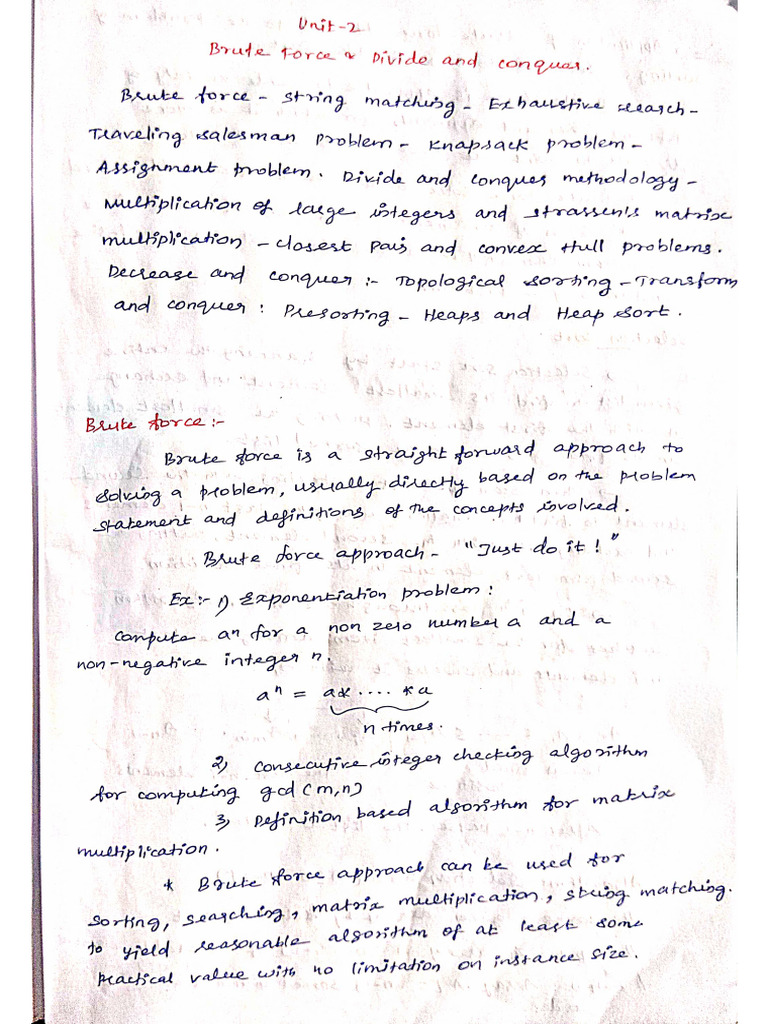 Unit-2
Brute Force & Divide and conquer.
Brute force - string matching - Exhaustive search -
Traveling salesman Problem - Knapsack problem -
Assignment problem. Divide and conquer methodology -
Multiplication of large integers and strassen's matrix
multiplication - closest pair and convex Hull problems.
Decrease and conquer :- Topological sorting - Transform
and conquer : Presorting - Heaps and Heap Sort.
Brute force :-
Brute force is a straight forward approach to
solving a problem, usually directly based on the problem
statement and definitions of the concepts involved.
Brute force approach - "Just do it!"
Ex:- 1) Exponentiation problem:
compute an for a non zero number a and a
non-negative integer n.
aⁿ = a* .... *a
n times.
2) consecutive integer checking algorithm
for computing gcd (m,n)
3) Definition based algorithm for matrix
multiplication.
* Brute force approach can be used for
sorting, searching, matrix multiplication, string matching.
to yield reasonable algorithm of at least some
practical value with no limitation on instance size.